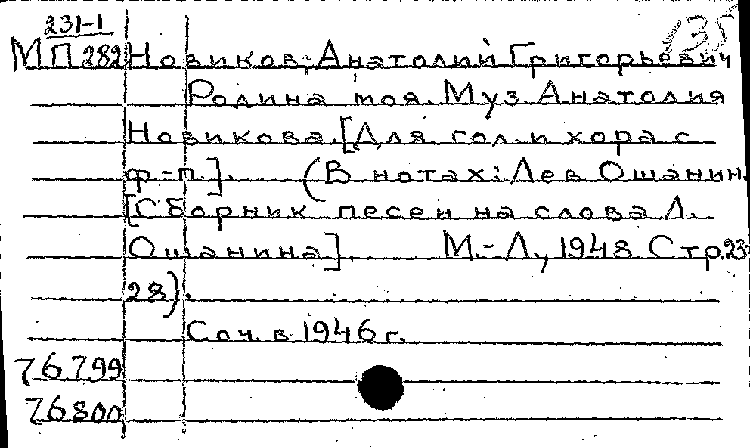 231-1
135
МП282 Новиков, Анатолий Григорьевич
Родина моя. Муз. Анатолия
Новикова. [Для гол. и хора с
ф-п.]. (В нотах: Лев Ошанин.
[Сборник песен на слова Л.
Ошанина]. М.-Л., 1948. Стр. 23-
28).
Соч. в 1946 г.
76799
76800